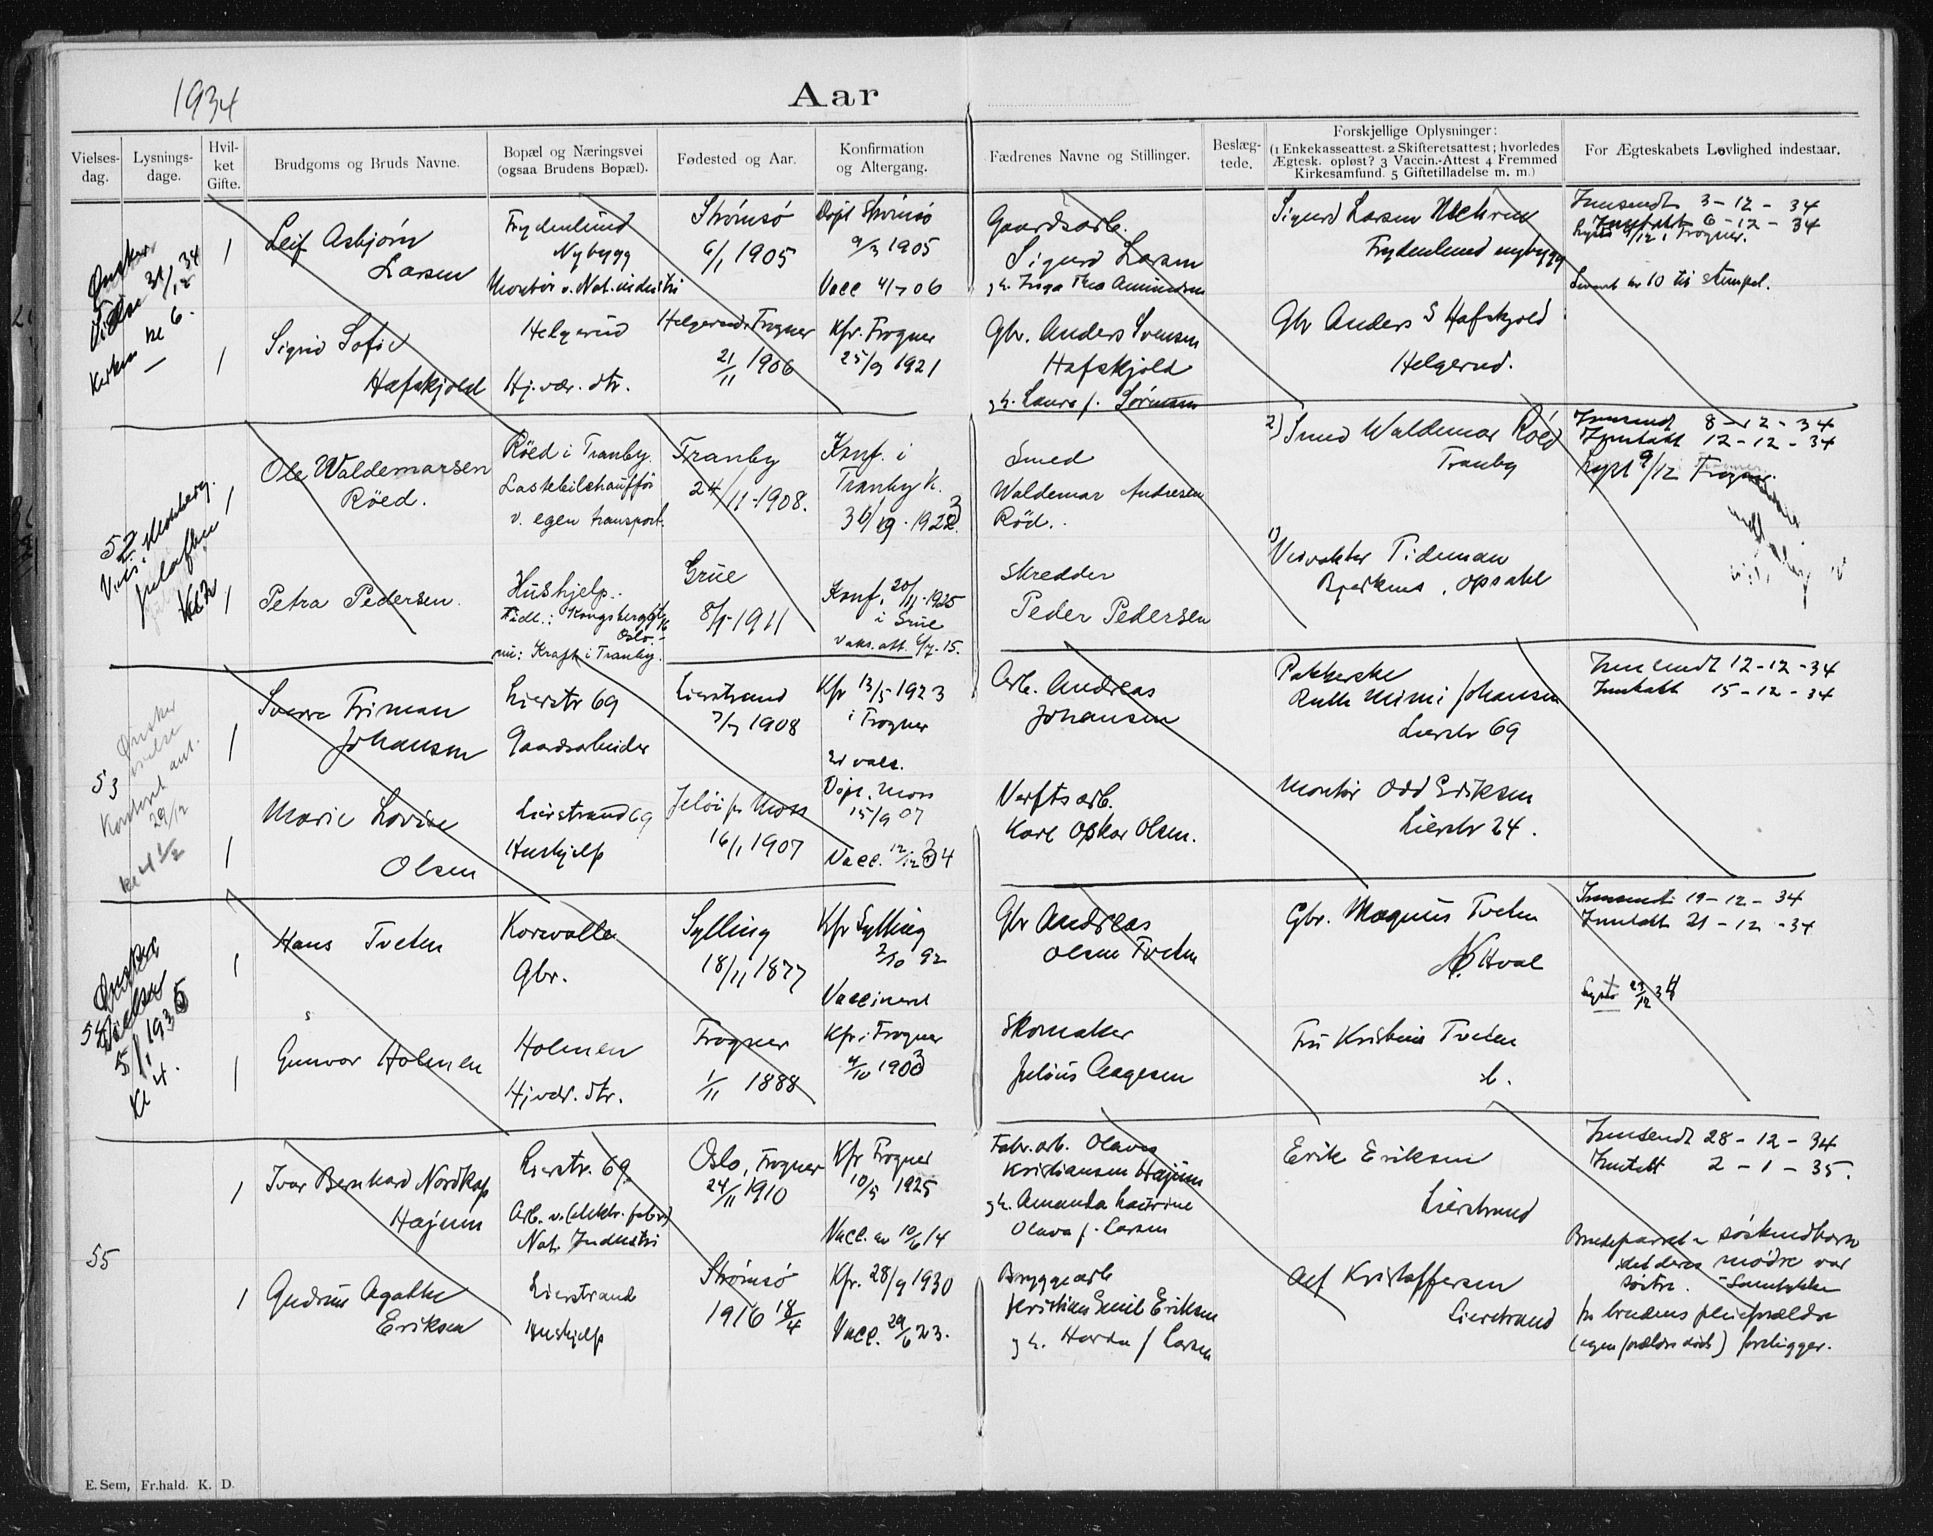 1934
Aar
Vielses-
dag.
Lysnings-
dage.
Hvil-
ket
Gifte.
Brudgoms og Bruds Navne.
Bopæl og Næringsvei
(ogsaa Brudens Bopæl).
Fødested og Aar.
Konfirmation
og Altergang.
Fædrenes Navne og Stillinger.
Beslæg-
tede.
Forskjellige Oplysninger:
(1 Enkekasseattest. 2 Skifteretsattest; hvorledes
Ægtesk. opløst? 3 Vaccin.-Attest 4 Fremmed
Kirkesamfund. 5 Giftetilladelse m. m.)
For Ægteskabets Lovlighed indestaar.
Ønsker
Vielse 31/12 34
Kirken kl 6.
1
Leif Asbjørn
Larsen
Frydenlund
Nybygg
Montør v. Nat. industri
Strømsø
6/1 1905
Døpt Strømsø
9/3 1905
Vacc 4/7 06
Gaardsarb.
Sigurd Larsen
g.h. Inga Thea Amundsen
Sigurd Larsen
Frydenlund nybygg
Innsendt 3-12-34
Inntatt 6-12-34
Lyst 9/12 i Frogner.
10 til stempel.
1
Sigrid Sofie
Hafskjold
Helgerud
Hj.vær. dtr.
Helgerud, Frogner
21/11 1906
Kfr. Frogner
25/9 1921
Gbr. Anders Svensen
Hafskjold
g.h. Laura f. Sørensen
Gbr Anders S Hafskjold
Helgerud.
52
Kl 2
1
Ole Waldemarsen
Røed.
Røed i Tranby.
Lastebilchauffør
v. egen transport.
Tranby
24/11-1908.
Konf. i
Tranby k.
Smed
Waldemar Andresen
Rød.
2) Smed Waldemar Røed
Tranby
Innsendt 8-12-34
Inntatt 12-12-34
Lyst 9/12 Frogner.
1
Petra Pedersen.
Hushjelp.
Tidl.: Kongsberggt. 16
Oslo.-
nu: Kraft i Tranby.
Grue
8/5-1911
Konf. 20/11-1925
i Grue
Vaks.att. 6/7-15.
Skredder
Peder Pedersen
1) Veivokter Tideman
Bjerknes, Opsahl
53
Ønsker
vielse
29/12
1
Sverre Friman
Johansen
Lierstr 69
Gaardsarbeider
Lierstrand
7/7 1908
Kfr 13/5 1923
i Frogner
Er vacc.
Arb. Andreas
Johansen
Pakkerske
Ruth Mimi Johansen
Lierstr 69
Innsendt 12-12-34
Inntatt 15-12-34
1
Marie Lovise
Olsen
Lierstrand 69
Hushjelp
Jeløi pr Moss
16/1 1907
Døpt. Moss
15/9 07
Vacc. 12/12 34
Verftsarb.
Karl Oskar Olsen.
Montør Odd Eriksen
Lierstr 24.
Ønsker
54 Vielse
5/1 1935
kl 4.
1
Hans Tveten
Korvalle
Gbr.
Sylling
18/11 1877
Kfr Sylling
2/10 92
Vaccinert
Gbr Andreas
Olsen Tveten
Gbr. Magnus Tveten
N. Hval
Innsendt 19-12-34
Inntatt 21-12-34
Lyst 23/12 34
1
Gunvor Holmen
Holmen
Hj.vær. dtr.
Frogner
1/11 1888
Kfr i Frogner
4/10 1903
Skomaker
Julius Aagesen
Fru Kristine Tveten
55
1
Ivar Bernhard Nordkap
Hajum
Lierstr. 69
Arb. v. (elektr. fabr.)
Nat. Industri
Oslo, Frogner
24/11 1910
Kfr Frogner
10/5 1925
Vacc. av 10/6 14
Fabr.arb. Olaves
Kristiansen Hajum
g.h. Amanda Laurine
Olava f. Larsen
Erik Eriksen
Lierstrand
Innsendt 28-12-34
Inntatt 2-1-35.
Brudeparret er søskendbarn
idet deres mødre var
søstre. - Samtykke
fra brudens pleieforældre
(egen forældre død) foreligger.
1
Gudrun Agathe
Eriksen
Lierstrand
Hushjelp
Strømsø
1916 18/4
Kfr. 28/9 1930
Vacc. 29/6 23.
Bryggearb
Kristian Emil Eriksen
g.h. Harda f Larsen
Alf Kristoffersen
Lierstrand
E. Sem, Fr.hald. K. D.